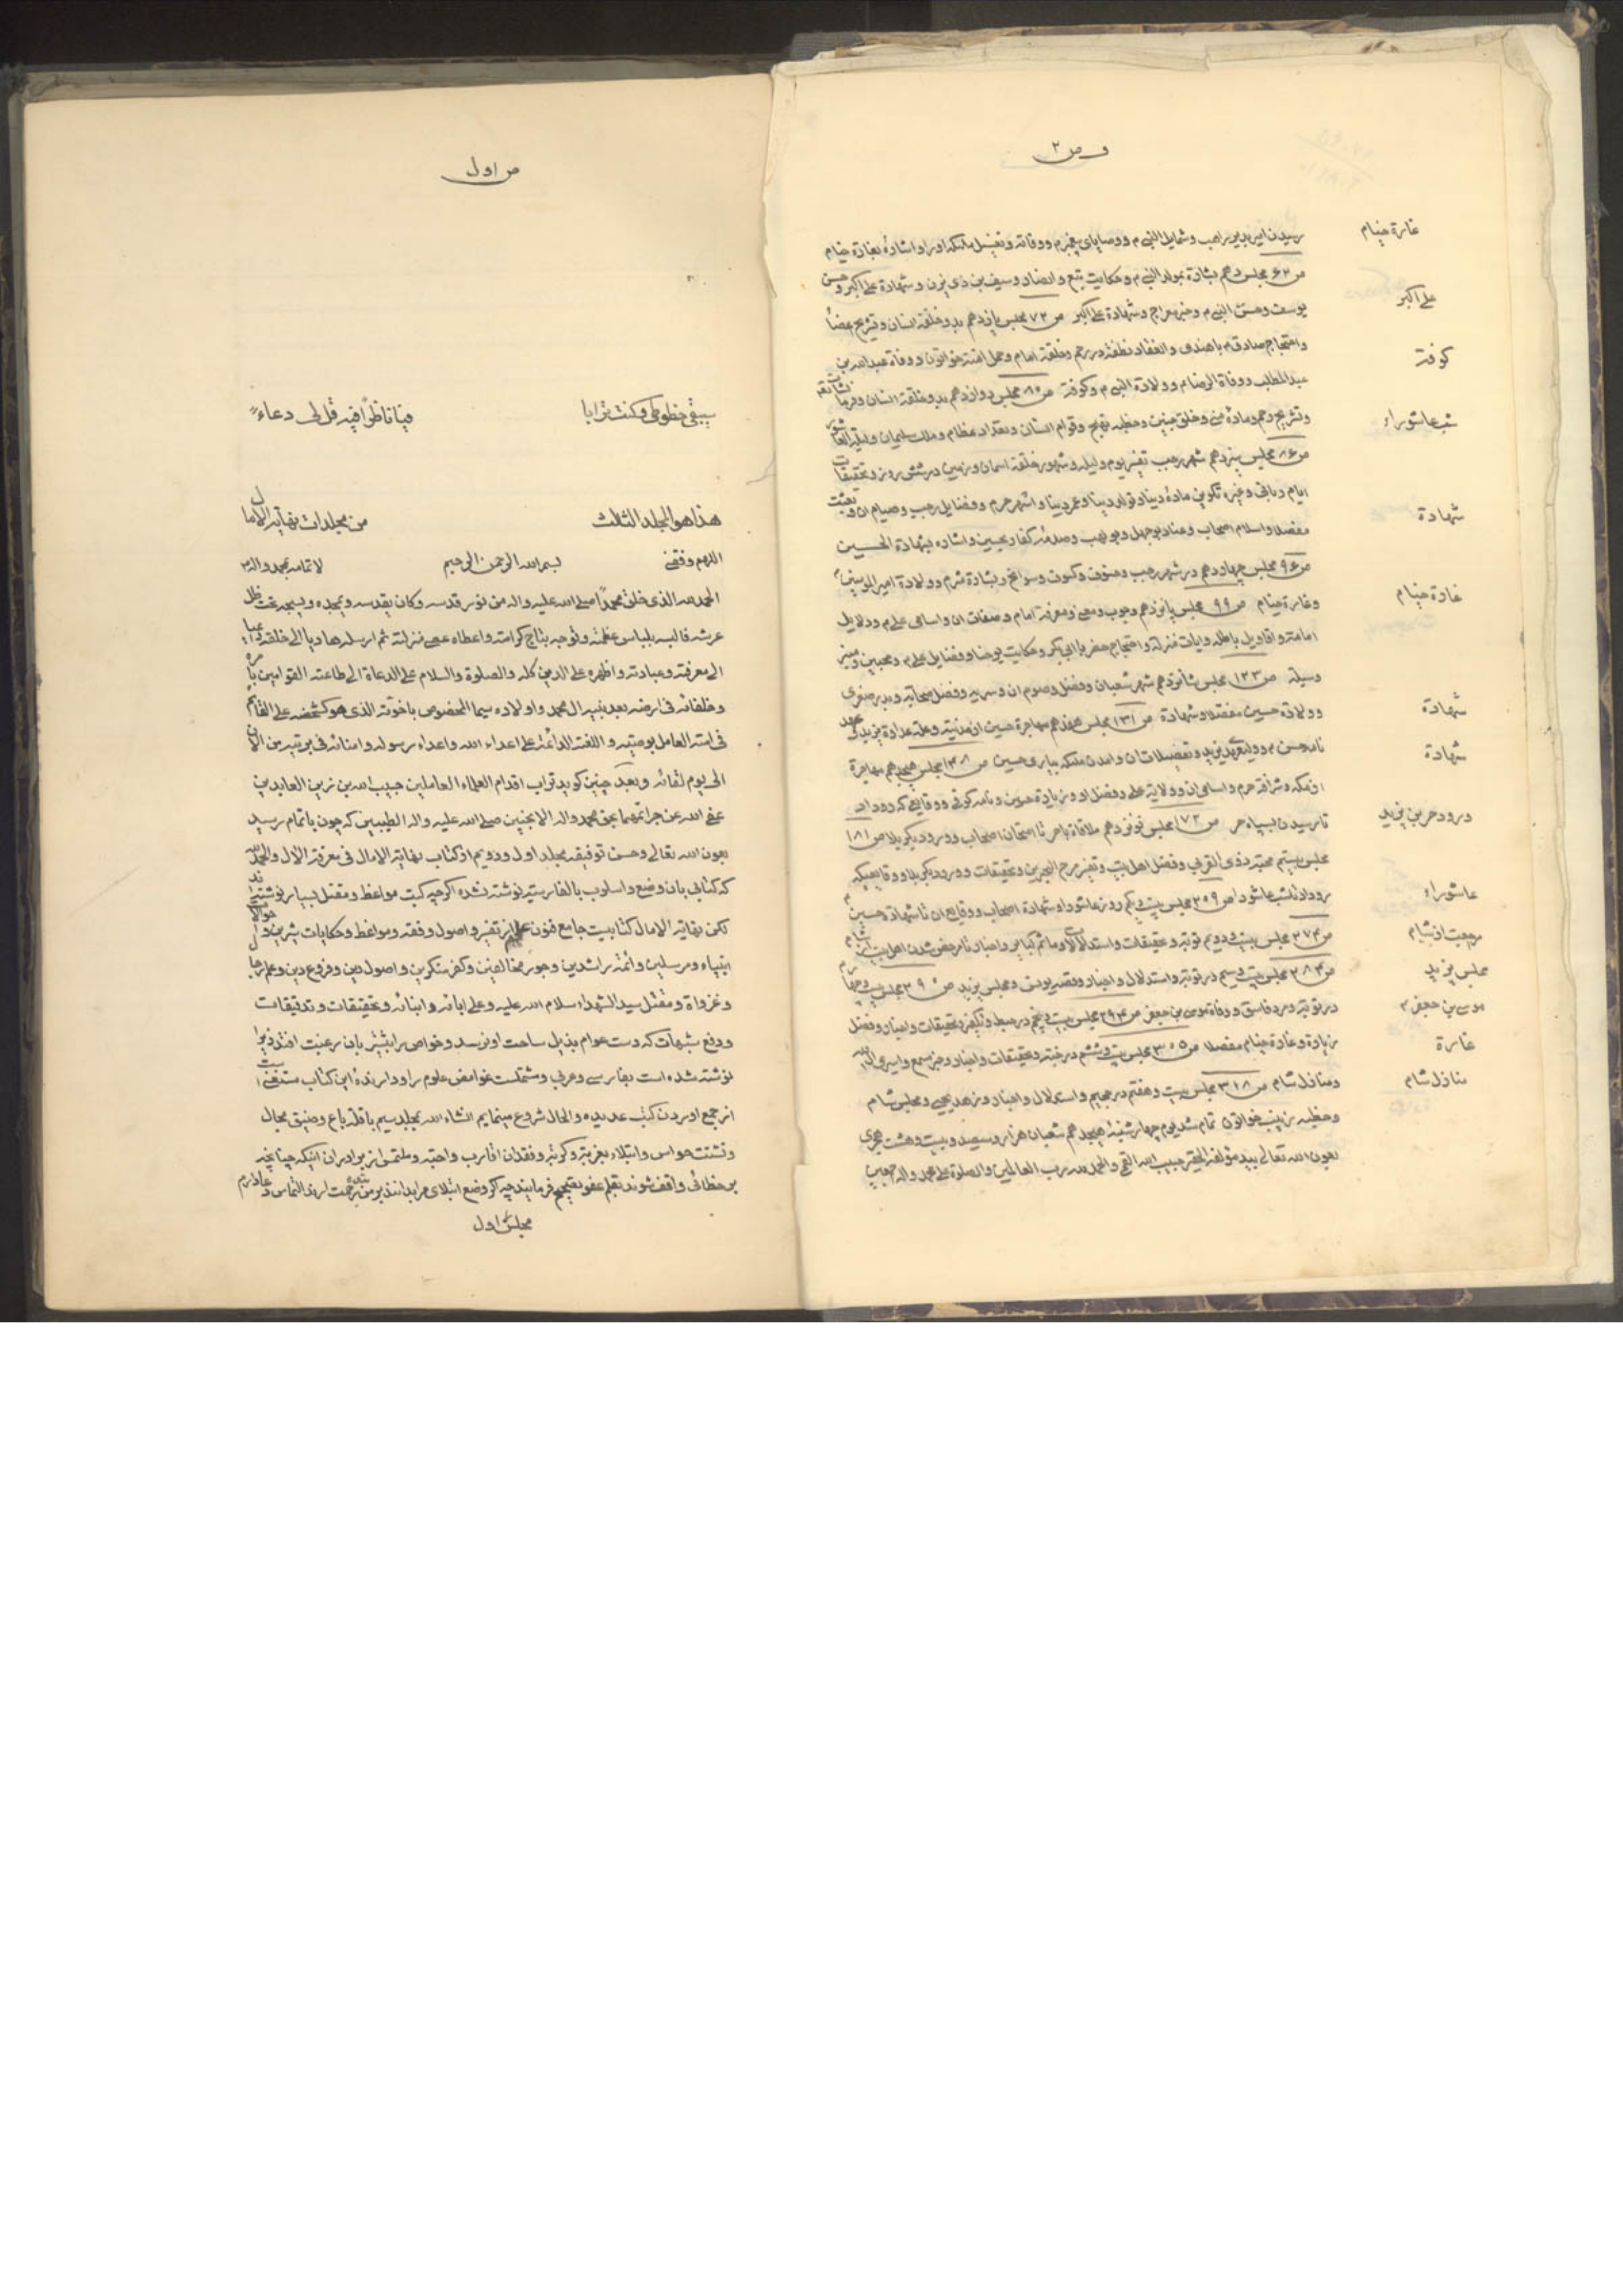 و ص ۲
غارة خیام
رسیدن امیر بدیر راهب و شمایل النبی م و وصایای پیغمبر م و وفاته و تغسیل ملئکه او را و اشارهٔ بغارة خیام
علی اکبر
ص ۶۲ مجلس دهم بشارة بمولد النبی م و حکایت تبع و انصار و سیف بن ذی یزن و شهادة علی اکبر و حسن
یوسف و حسن النبی م و خبر معراج و شهادة علی اکبر ص ۷۲ مجلس یازدهم بدو خلقة انسان و تشریح اعضا
کوفة
و احتجاج صادق م با هندی و انعقاد نطفه در رحم و خلقة امام و حمل امنه خواتون و وفاة عبدالله بن
عبدالمطلب و وفاة الرضا م و ولادة النبی م و کوفة ص ۸۰ مجلس دوازدهم بدو خلقة انسان و
شب عاشوراء
و تشریح رحم و مادهٔ منی و خلق جنین و قوام انسان و تعداد عظام و ملک سلیمان و لیلة العاشور
ص ۸۶ مجلس سیزدهم شهر رجب تفسیر یوم و لیله و شهور خلقة اسمان و زمین در شش روز و تحقیقات
ایام و باقی و غیره تکوین مادهٔ دنیا و تولد دنیا و عمر دنیا و اشهر حرم و فضایل رجب و صیام ان و بعثت
شهادة
مفصلا و اسلام اصحاب و عناد بوجهل و بو لهب و صدمهٔ کفار و اشاره بشهادة الحسین
ص ۹۶ مجلس چهاردهم در شهر رجب و خسوف و کسوف و سوانح و بشارة و ولادة امیر المومنین
غارة خیام
و غارة خیام ص ۹۹ مجلس پانزدهم وجوب و معنی و معرفة امام و صفات ان و اسامی علی م و دلایل
امامته و اقاویل باطله و ایات منزله و احتجاج با ابی بکر و حکایت یوحنا و فضایل علی م و محبین و منبر
وسیلة ص ۱۲۳ مجلس شانزدهم شهر شعبان و فضل و صوم ان و سریه و فضل صحابه و بدر صغری
شهادة
و ولادة حسین مفصلا و شهادة ص ۱۳۱ مجلس هفدهم مهاجرة حسین از مدینه و علة عداوة یزید و عهد
شهادة
نامه حسن م و ولیعهدی یزید و تفصیلات ان و امدن ملئکه بیاری حسین ص ۱۴۰۸ مجلس هیجدهم مهاجرة
از مکه و شرافة حرم و اسامی ان و ولایة علی و فضل او و زیارة حسین و نامه کوفی و وقایعی که رو داد
ورود حر بن یزید
تا رسیدن بسپاه حر ص ۱۷۲ مجلس نوزدهم ملاقاة با حر تا امتحان اصحاب و ورود بکربلا ص ۱۸۱
مجلس بیستم محبة ذی القربی و فضل اهل بیت و تفسیر مرج البحرین و تحقیقات و ورود بکربلا و وقایعیکه
عاشوراء
رو داد تا شب عاشورا ص ۲۰۹ مجلس بیست و یکم روز عاشورا و شهادة اصحاب و وقایع ان تا شهادة حسین م
مرجعت از شام
ص ۲۷۴ مجلس بیست و دویم توبه و تحقیقات و استدلالات و ماتم کبایر و اخبار تا مرخص شدن اهل بیت از شام
مجلس یزید
ص ۲۸۴ مجلس بیست و سیم در توبه و استدلال و اخبار و قصه یونس و مجلس یزید ص ۲۹۰ مجلس بیست و چهارم
موسی بن جعفر م
در توبه و مرد فاسق و وفاة موسی بن جعفر ص ۲۹۴ مجلس بیست و پنجم در حبط و تکفیر و تحقیقات و اخبار و فضل
غارة
زیارة و غارة خیام مفصلا ص ۳۰۵ مجلس بیست و ششم در جنة و تحقیقات و اخبار و خبر مسمع و اسیری ال الله
منازل شام
و منازل شام ص ۳۱۸ مجلس بیست و هفتم در جحیم و استدلال و اخبار و زهد یحیی و مجلس شام
و خطبه زینب خواتون تمام شد یوم چهارشنبه هیجدهم شعبان هزار و سیصد و بیست و هشت هجری
بعون الله تعالی بید مؤلفه الحقیر حبیب الله القمی و الحمد لله رب العالمین و الصلوة علی محمد و اله اجمعین
ص اول
سیبقی خطوطی و کنت ترابا فیا ناظرًا فیه قل لی دعاءً
هذا هو المجلد الثالث من مجلدات نهایة الامال
اللهم وفقنی بسم الله الرحمن الرحیم لاتمامه بمحمد و اله
الحمد لله الذی خلق محمداً صلی الله علیه و اله من نور قدسه و کان یقدسه و یمجده و یسبحه تحت ظل
عرشه فالبسه بلباس عظمته و توجه بتاج کرامته و اعطاه منزلته ثم ارسله هادیا الی خلقه
الی معرفته و عبادته و اظهره علی الدین کله و الصلوة و السلام علی الدعاة الی طاعته القوامین بامره
و خلفائه فی ارضه بعد نبیه ال محمد و اولاده سیما المخصوص باخوته الذی هو کشخصه علی القائم
فی امته العامل بوصیته و اللعنة الدائمة علی اعداء الله و اعداء رسوله و امنائه فی بریته من الان
الی یوم لقائه و بعد چنین کوید تراب اقدام العلماء العاملین حبیب الله بن زین العابدین
عفی الله عن جرائمهما بحق محمد و اله الانجبین صلی الله علیه و اله الطیبین که چون باتمام رسید
بعون الله تعالی و حسن توفیقه مجلد اول و دویم از کتاب نهایة الامال فی معرفة الال و الحمد لله
که کتابی بان وضع و اسلوب بالفارسیه نوشته نشده اگرچه کتب مواعظ و مقتل بسیار نوشته‌اند
لکن نهایة الامال کتابیست جامع فنون علم از تفسیر و اصول و فقه و مواعظ و حکایات شیرین و احوال
انبیاء و مرسلین و ائمهٔ راشدین و جور مخالفین و کفر منکرین و اصول دین و فروع دین و علم رجال
و غزواة و مقتل سید الشهداء سلام الله علیه و علی ابائه و ابنائه و تحقیقات و تدقیقات
و دفع شبهات که دست عوام بذیل ساحت او نرسد و خواص را بیشتر بان رغبت افتد زیرا
نوشته شده است بفارسی و عربی و مشتملست غوامض علوم را و دارندهٔ این کتاب مستغنی است
از جمع اوردن کتب عدیده و الحال شروع مینمایم انشاء الله بمجلد سیم با قلة باع و ضیق مجال
و تشتت حواس و ابتلاء بغربة و کربة و فقدان اقارب و احبه و ملتمس از برادران اینکه چنانچه
بر خطائی واقف شوند بقلم عفو تصحیح فرمایند چه کر وضع ابتلای مرا بدانند بر من رحمت ارند التماس دعا دارم
مجلس اول